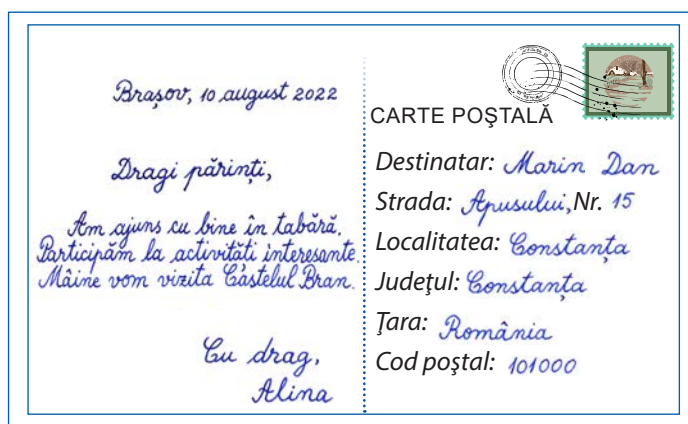 Brașov, 10 august 2022
Dragi părinți,
Am ajuns cu bine în tabără.
Participăm la activități interesante.
Mâine vom vizita Castelul Bran.
Cu drag,
Alina
CARTE POŞTALĂ
Destinatar: Marin Dan
Strada: Apusului, Nr. 15
Localitatea: Constanța
Judeţul: Constanța
Ţara: România
Cod poştal: 101000